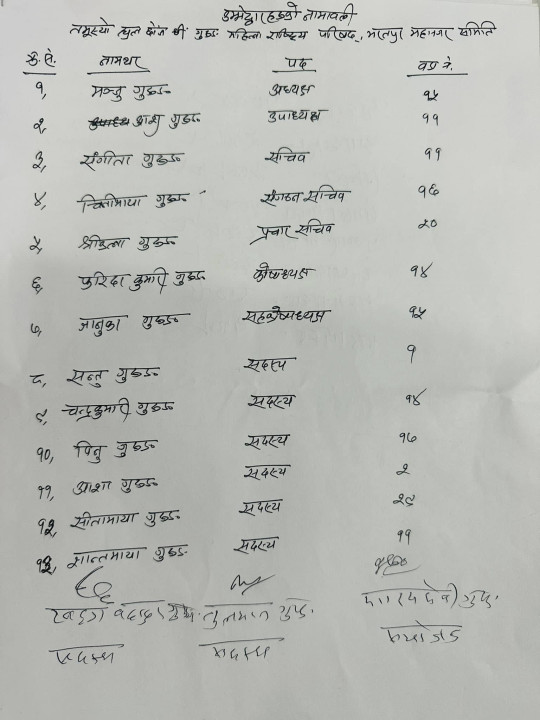 उम्मेद्वारहरुको नामावली
तमुस्यो ल्हुल छोज धीं गुरुङ महिला राष्ट्रिय परिषद्, भरतपुर महानगर समिति
क्र.सं. नामथर पद वडा नं.
१, मञ्जु गुरुङ अध्यक्ष १५
२, आशु गुरुङ उपाध्यक्ष ११
३, संगीता गुरुङ सचिव ११
४, चिजीमाया गुरुङ संगठन सचिव १६
५, श्रीकला गुरुङ प्रचार सचिव २०
६, फरिदा कुमारी गुरुङ कोषाध्यक्ष १४
७, जानुका गुरुङ सहकोषाध्यक्ष १५
८, सन्तु गुरुङ सदस्य १
९, चन्द्रकुमारी गुरुङ सदस्य १४
१०, पितु गुरुङ सदस्य १७
११, आशा गुरुङ सदस्य २
१२, सीतामाया गुरुङ सदस्य २९
१३, शान्तमाया गुरुङ सदस्य ११
खड्ग बहादुर गुरुङ तुलमान गुरुङ देवी गुरुङ
सदस्य सदस्य संयोजक